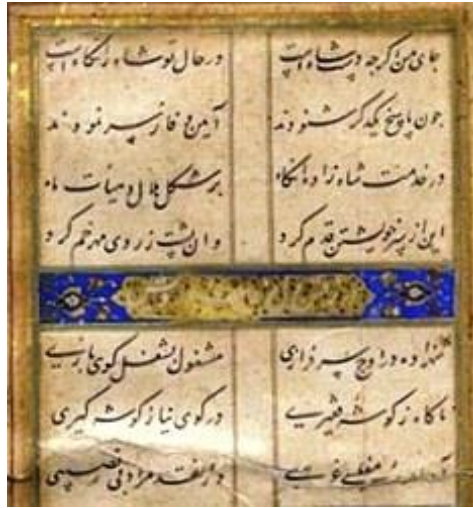 جای من اگرچه دست شاه است در حال تو شاه را نگاه است
چون پاسخ یکدگر شنودند آیین وفا ز سر نمودند
در خدمت شاه زاده ناگاه بر شکل هلال و هیأت ماه
این از سر خویشتن قدم کرد وان پشت ز روی مهر خم کرد
شهزاده در اوج سرفرازی مشغول بشغل کوی بازی
ناگاه ز گوشه فقیری در کوی نیاز گوشه گیری
مفلسی غریبی نقد مراد بی نصیبی